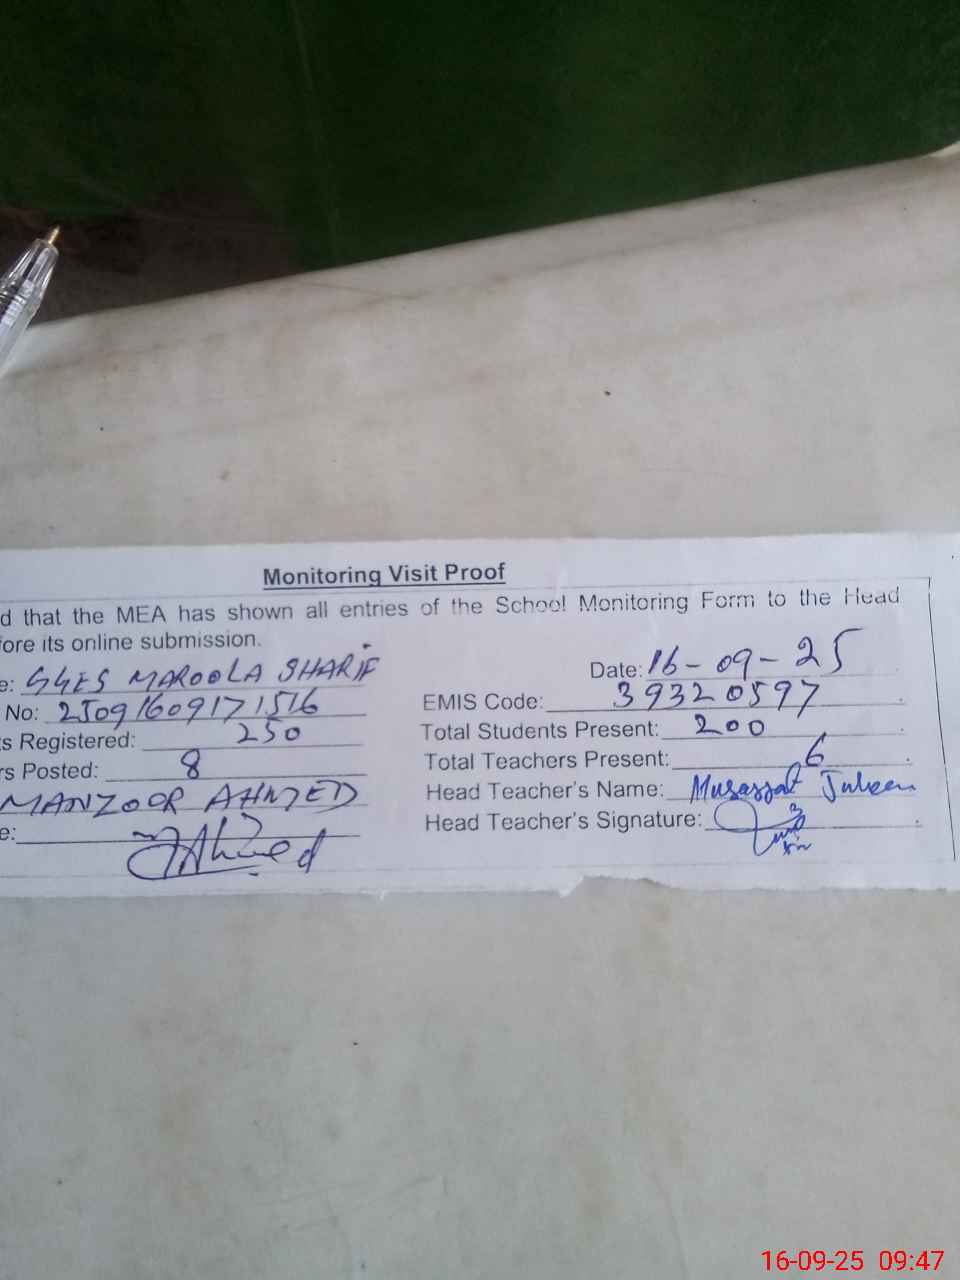 Monitoring Visit Proof
d that the MEA has shown all entries of the School Monitoring Form to the Head
fore its online submission.
e: GGES MAROOLA SHARIF Date: 16-09-25
No: 2509160917 1516 EMIS Code: 39320597
ts Registered: 250 Total Students Present: 200
rs Posted: 8 Total Teachers Present: 6
MANZOOR AHMED Head Teacher's Name: Musarrat
e: Ahmed Head Teacher's Signature:
16-09-25 09:47